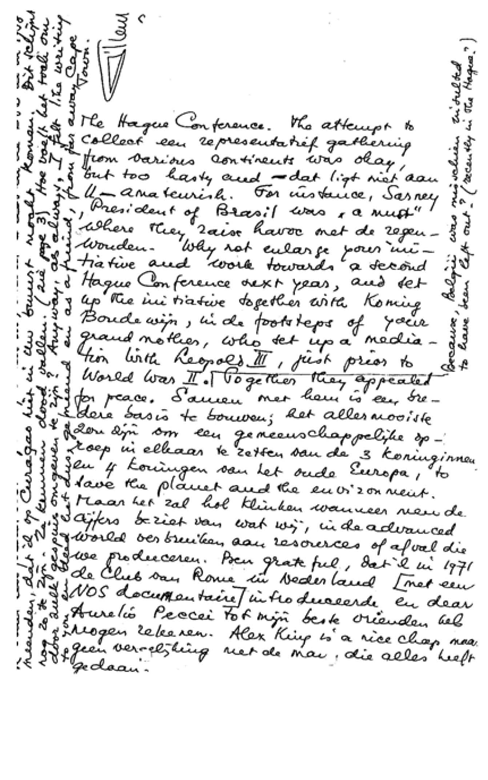 The Hague Conference. The attempt to
collect een representatief gathering
from various continents was okay,
but too hasty and – dat ligt niet aan
U – amateurish. For instance, Sarney
, President of Brasil was "a must"
where they raise havoc met de regen-
wouden. Why not enlarge your ini-
tiative and work towards a second
Hague Conference next year, and set
up the initiative together with Koning
Boudewijn, in de footsteps of your
grand mother, who set up a media-
tion with Leopold III, just prior to
World War II. Together they appealed
for peace. Samen met hem is een bre-
dere basis te bouwen; het allermooiste
zou zijn om een gemeenschappelijke op-
roep in elkaar te zetten van de 3 koninginnen
en 4 koningen van het oude Europa, to
save the planet and the environment.
Maar het zal hol klinken wanneer men de
cijfers beziet van wat wij, in de advanced
world verbruiken aan resources of afval die
we produceren. Ben grateful, dat ik in 1971
de Club van Rome in Nederland [met een
NOS documentaire] introduceerde en dear
Aurelio Peccei tot mijn beste vrienden heb
mogen rekenen. Alex King is a nice chap maar
geen vergelijking met de man, die alles heeft
gedaan.
Because, België was misschien insulted
to have been left out? (recently in The Hague?)
meenden, dat ik op Curaçao niet in Uw buurt mocht komen. Dit schijnt
nog zo te zijn. Ze kunnen dood vallen. (zie page 3) Hoe
door zulk gespuis omgeven te zijn? Anyway, as always, I felt like writing
to you en bleed het dus gemeend en as a friend, from far away Cape
Town.